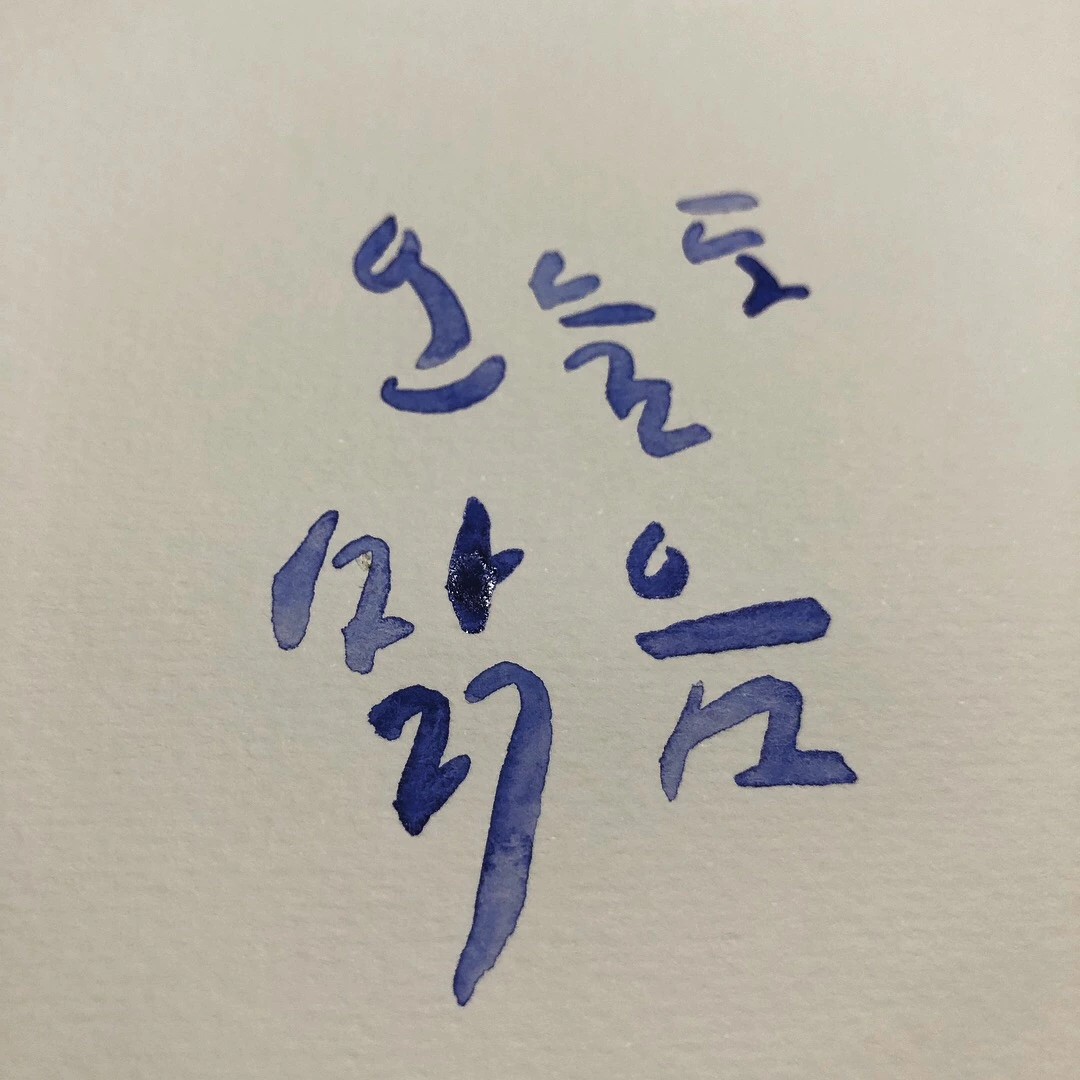 오늘도
맑음